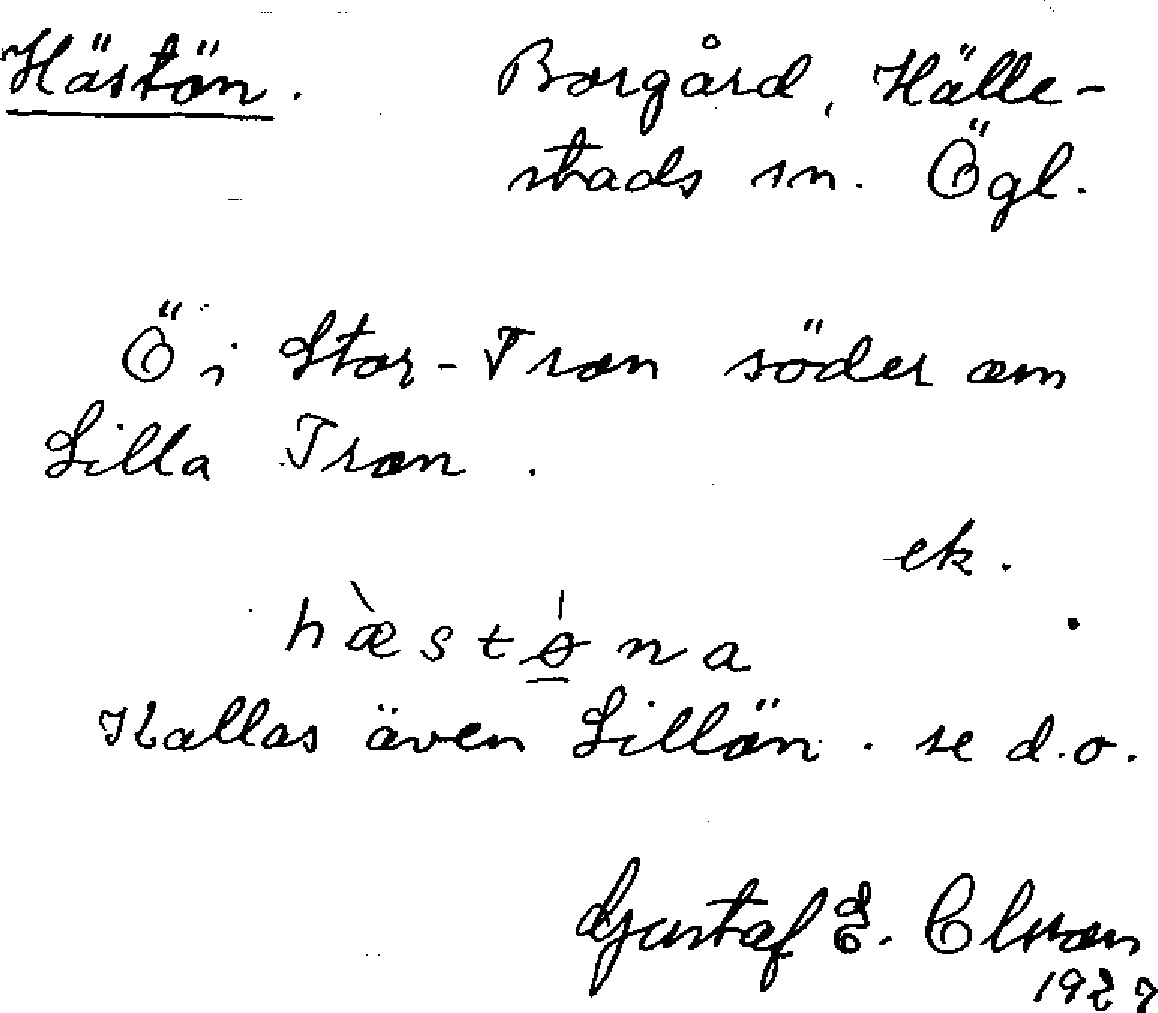 Hästön. Borgård, Hälle-
stads sn. Ögl.
Ö i Stor-Tron söder om
Lilla Tron.
ek.
hæ̀stǿ̲na
Kallas även Lillön. se d.o.
Gustaf E. Olsson
1927